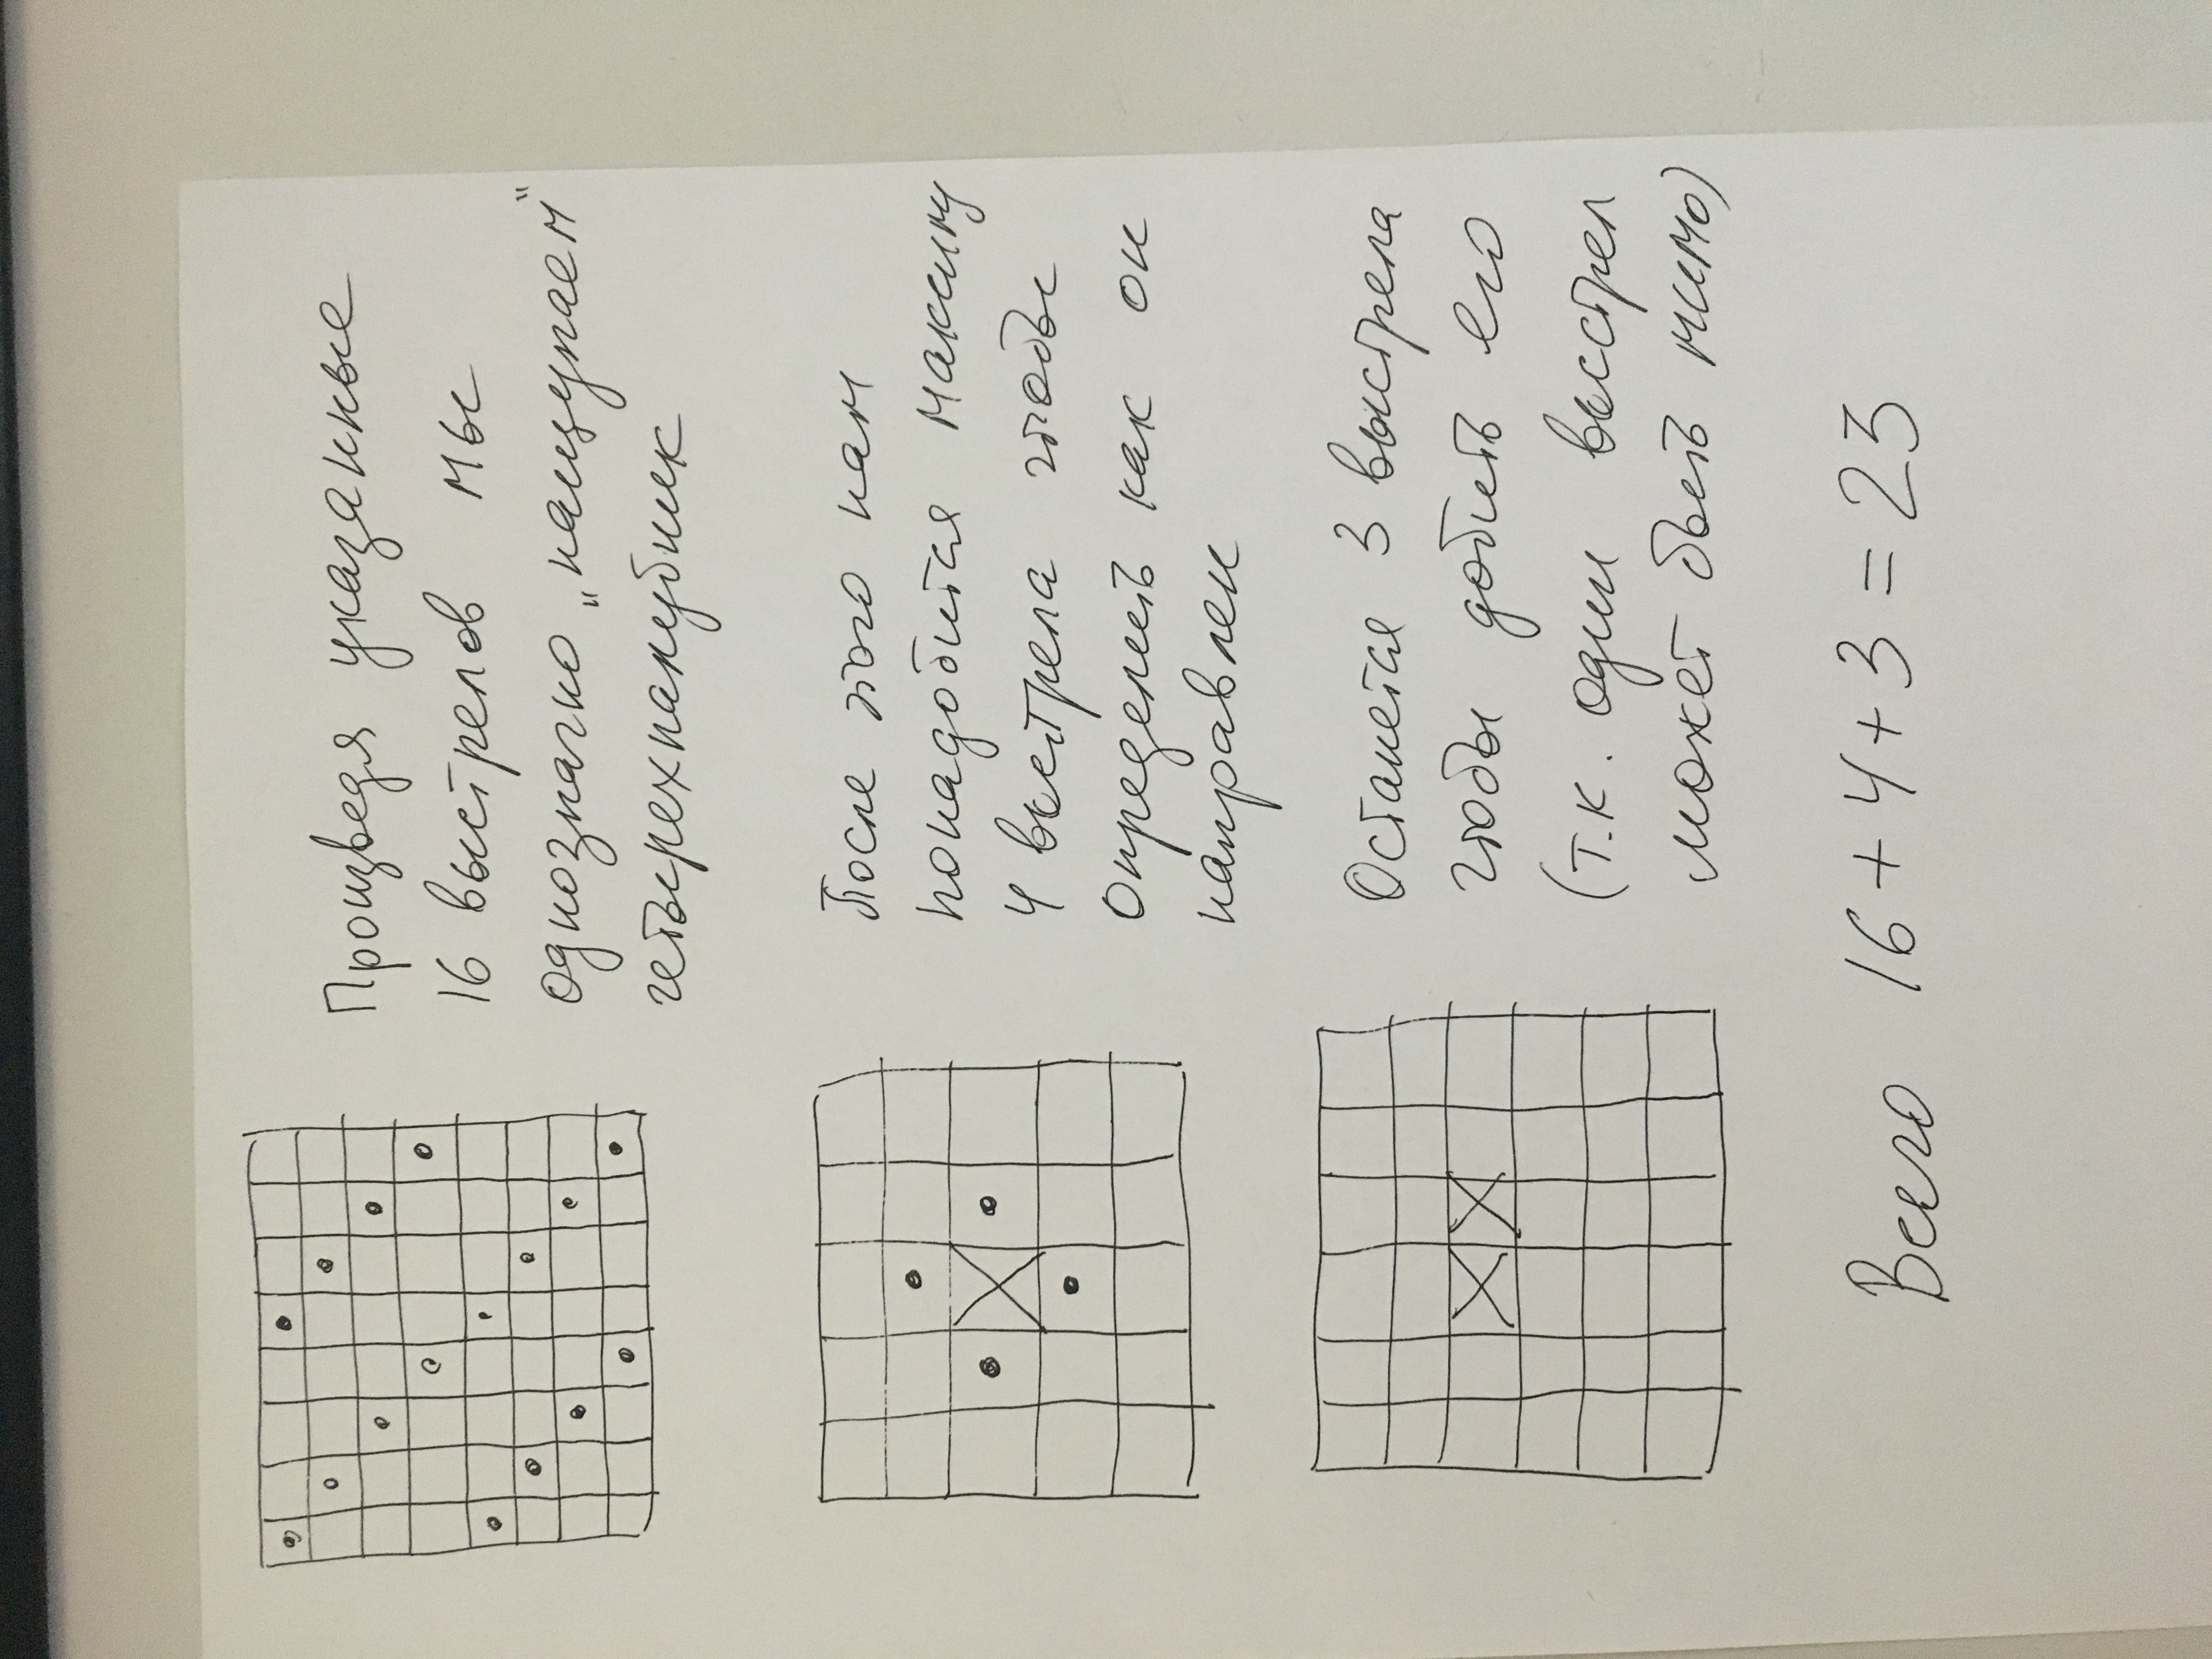 Произведя указанные
16 выстрелов мы
однозначно „нащупаем"
четырехпалубник
После этого нам
понадобится максимум
4 выстрела чтобы
определить как он
направлен
Останется 3 выстрела
чтобы добить его
(т.к. один выстрел
может быть мимо)
Всего 16 + 4 + 3 = 23